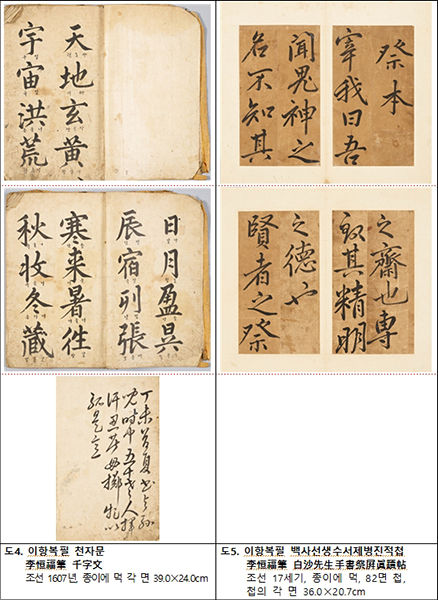 天地玄黃
宇宙洪荒
日月盈昃
辰宿列張
寒来暑徃
秋收冬藏
丁未首夏書与孫
兒時中五十老人揮
汗忍苦毋擲牝以
孤是意
도4. 이항복필 천자문
李恒福筆 千字文
조선 1607년, 종이에 먹 각 면 39.0×24.0cm
祭本
宰我曰吾
聞鬼神之
名不知其
之齋也専
致其精明
之德也
賢者之祭
도5. 이항복필 백사선생수서제병진적첩
李恒福筆 白沙先生手書祭屛眞蹟帖
조선 17세기, 종이에 먹, 82면 첩,
첩의 각 면 36.0×20.7cm